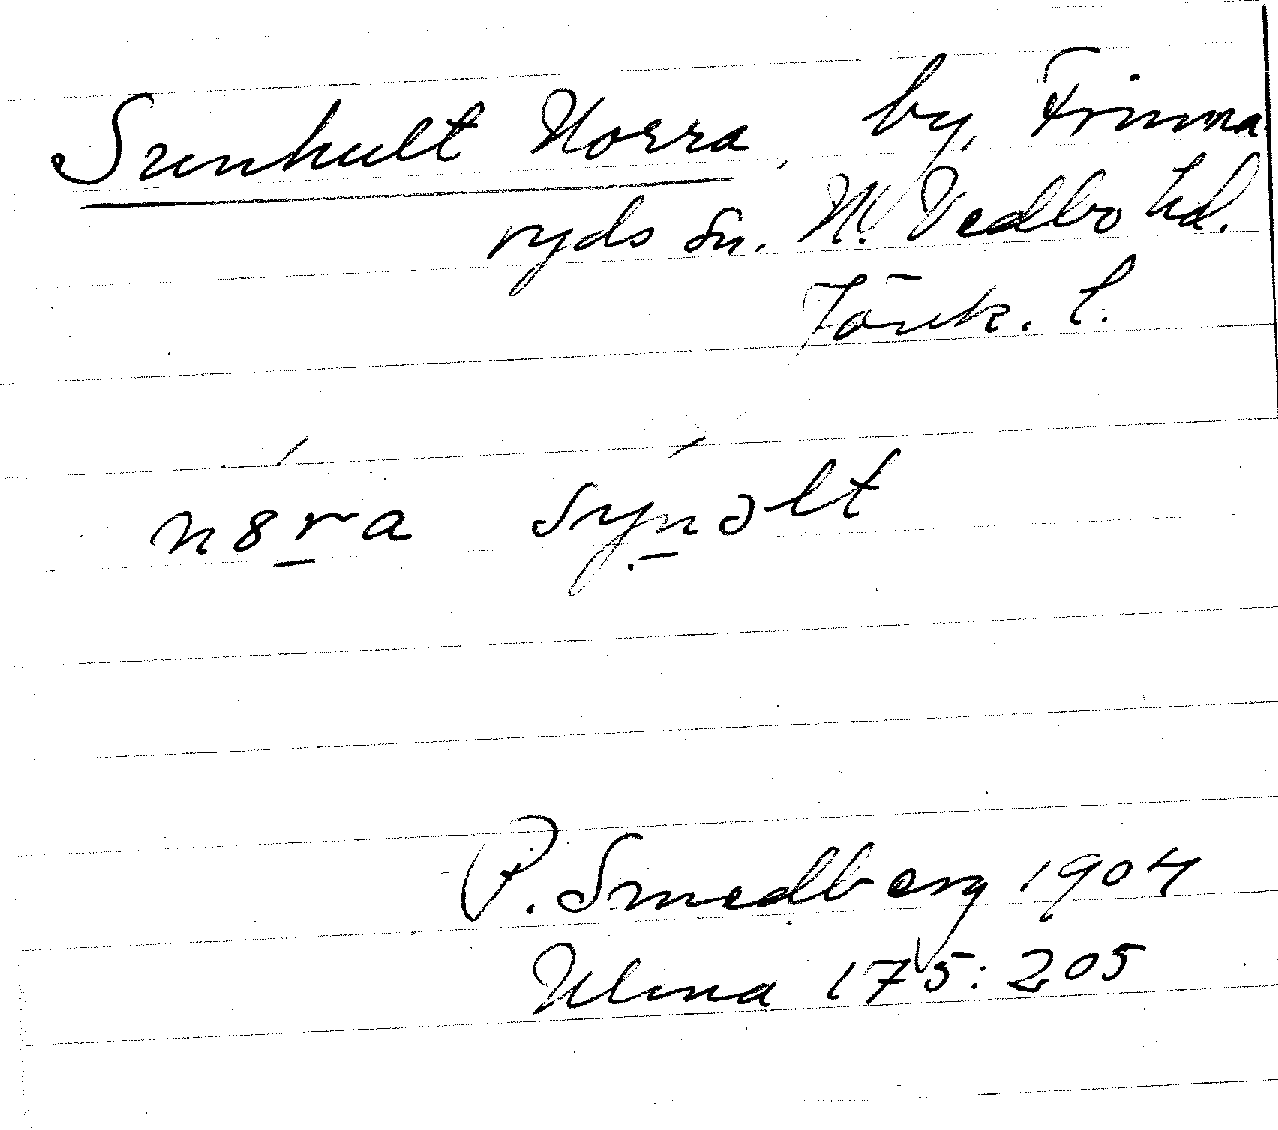 Sunhult Norra, by, Frinna
ryds sn. N. Vedbo hd.
Jönk. l.
n8ra synəlt
P. Smedberg 1904
Ulma 175:205